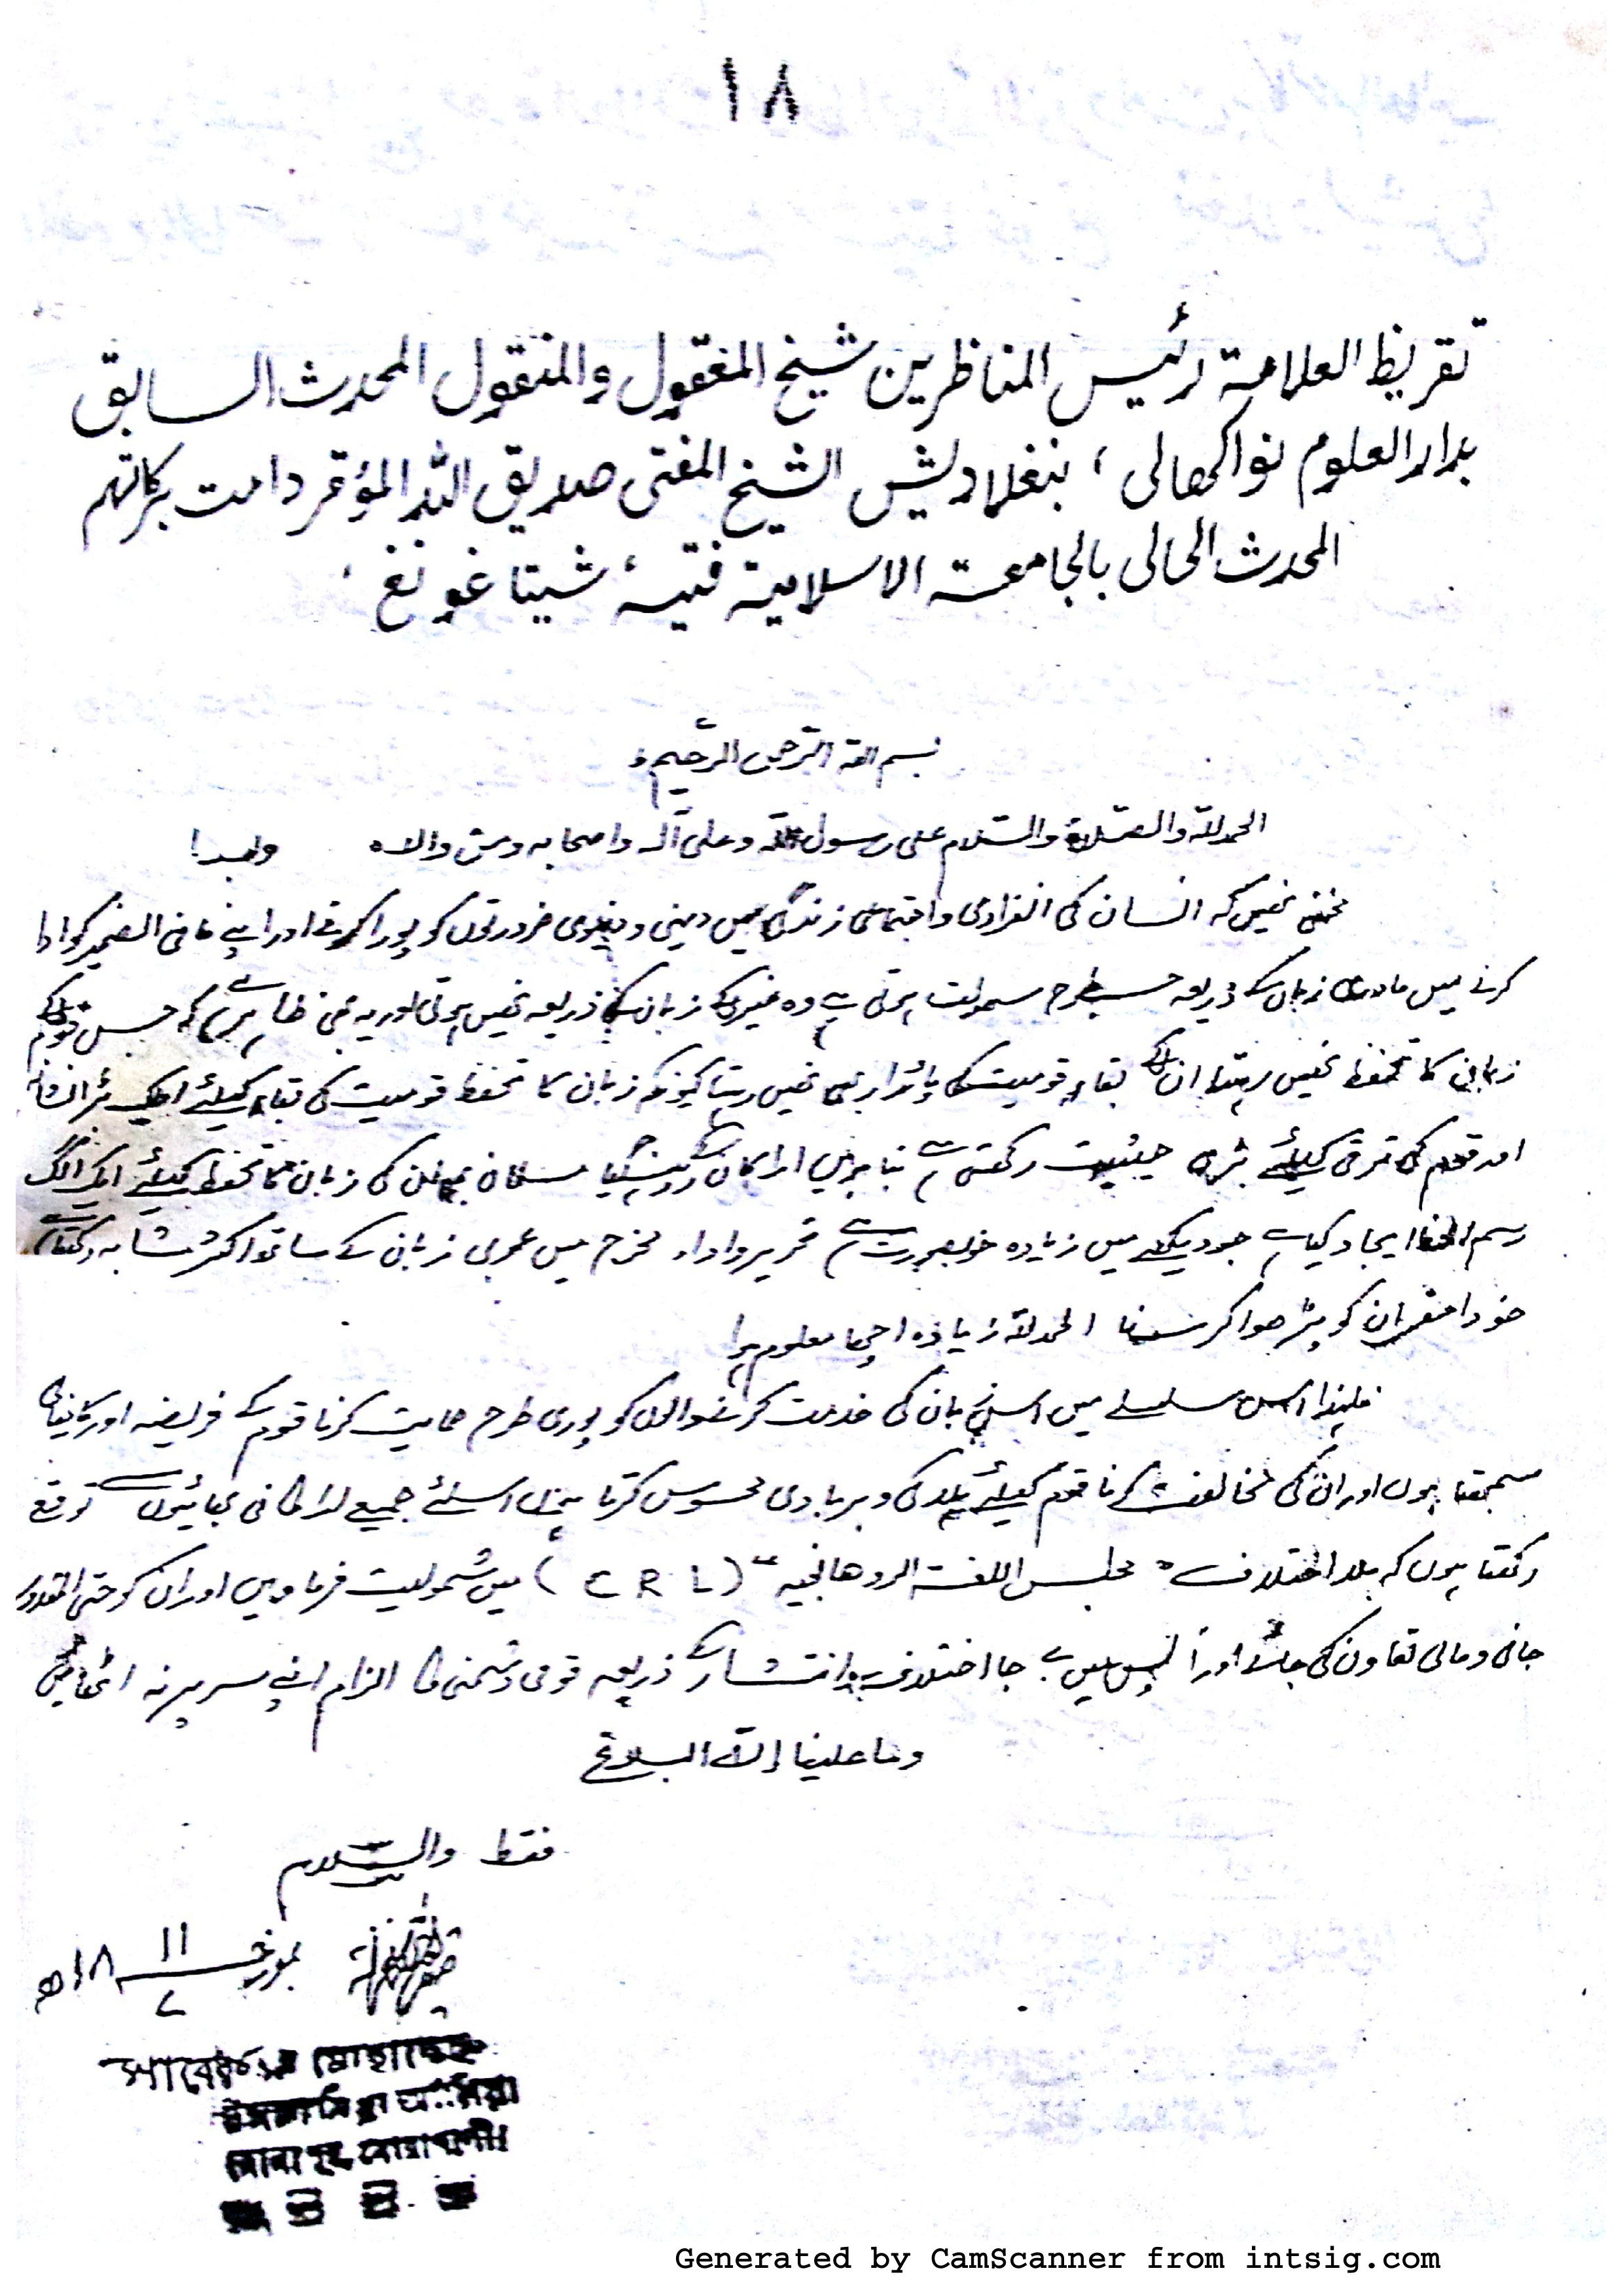 ١٨
تقريظ العلامة رئيس المناظرين شيخ المعقول والمنقول المحدث السابق
بدار العلوم نواكهالى، بنغلاديش الشيخ المفتى صديق الله المؤقر دامت بركاتهم
المحدث الحالى بالجامعة الاسلامية فتيه شيتاغونغ،
بسم اللہ الرّحمٰن الرّحیم
الحمدللہ والصّلاۃ والسّلام علی رسول اللہ وعلی آلہ واصحابہ ومن والاہ وبعد!
مخفی نھیں کہ انسان کی انفرادی واجتماعی زندگی میں دینی و دنیوی ضرورتوں کو پورا کرنے اور اپنے مافی الضمیر کو ادا
کرنے میں مادری زبان کے ذریعہ جسطرح سہولت ہوتی ہے وہ غیر کے زبان کے ذریعہ نھیں ہوتی اور یہ بھی ظاہر ہے کہ جس قوم کے
زبان کا تحفظ نھیں رہتا ان کے بقاء قومیت کی پائدار بھی نھیں رہتا کیونکہ زبان کا تحفظ قومیت کی بقاء کیلئے ایک بڑا نشان
اور قوم کی ترقی کیلئے حیثیت رکھتی ہے بنا بریں اراکان کے روہنگیا مسلمان بھائی کی زبان کا تحفظ کیلئے ایک الگ
رسم الخط ایجاد کیا ہے جو دیکھنے میں زیادہ خوبصورت ہے تحریر و اداء مخرج میں عربی زبان کے ساتھ اکثر مشابہ رکھتا ہے
خود احقر ان کو پڑھوا کر سنا الحمدللہ زیادہ اچھا معلوم ہوا
فلہذا اس سلسلے میں اس زبان کی خدمت کرنے والوں کو پوری طرح حمایت کرنا قوم کے فریضہ اور کامیابی
سمجھتا ہوں اور ان کی مخالفت کرنا قوم کیلئے ہلاکی و بربادی محسوس کرتا ہوں اسلئے جمیع اراکانی بھائیوں سے توقع
رکھتا ہوں کہ بلا اختلاف " مجلس اللغة الروهانجيه " (C R L) میں شمولیت فرماویں اور ان کو حتی المقدور
جانی و مالی تعاون کی جائے اور آپس میں بے جا اختلاف و انتشار کے ذریعہ قومی دشمنی کا الزام اپنے سر پر نہ اٹھائیں
وما علینا إلّا البلاغ
فقط والسّلام
بمورخہ ١١/٧ ١٨ھ
Generated by CamScanner from intsig.com